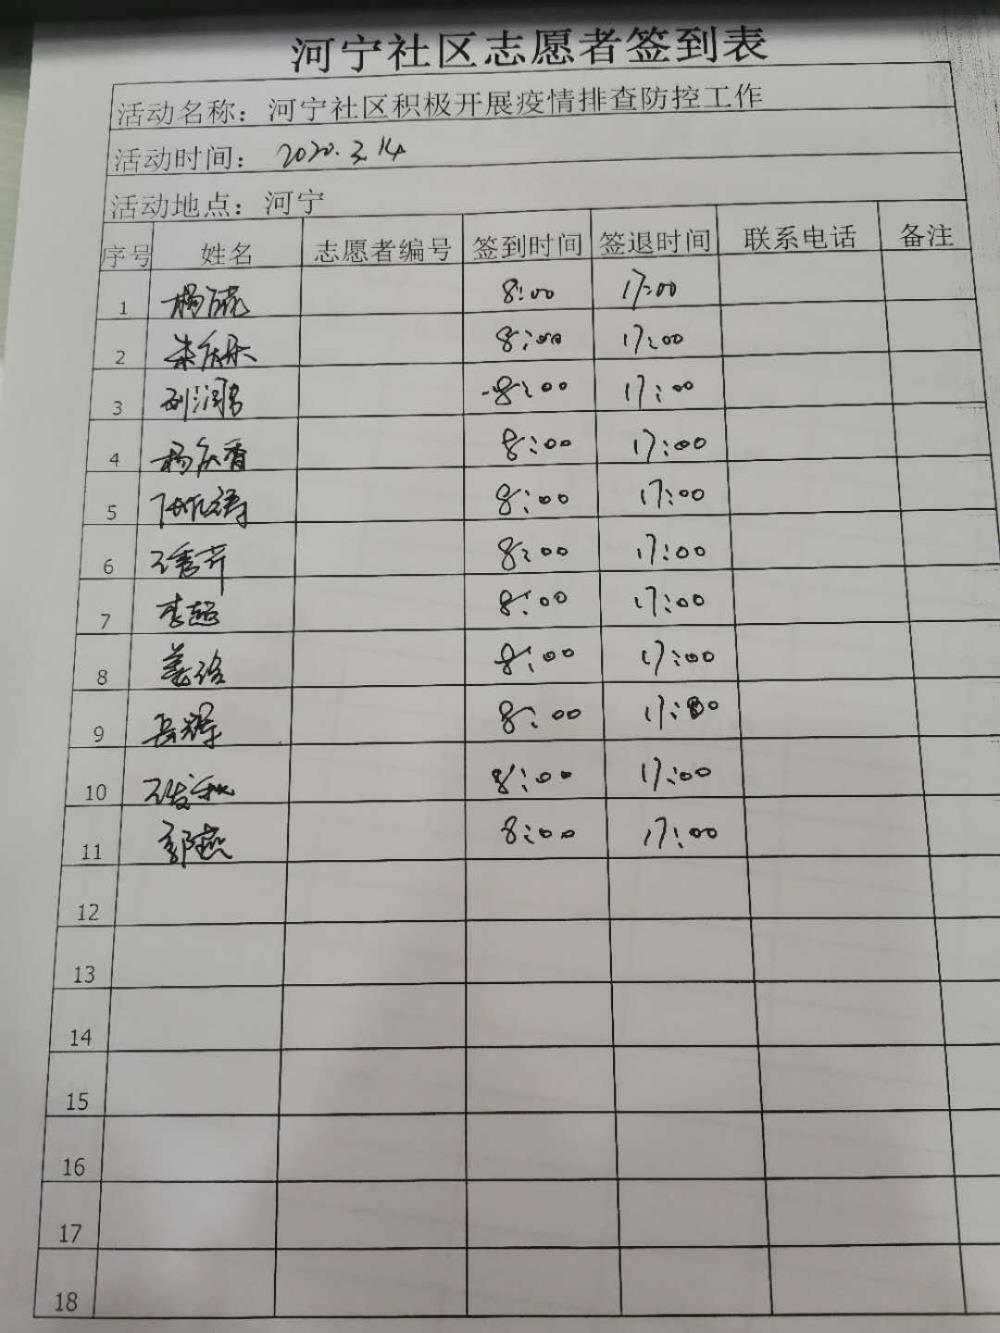 河宁社区志愿者签到表
活动名称：河宁社区积极开展疫情排查防控工作
活动时间： 2020.3.14
活动地点：河宁
序号 姓名 志愿者编号 签到时间 签退时间 联系电话 备注
1 8:00 17:00
2 8:00 17:00
3 刘润鹏 8:00 17:00
4 杨庆香 8:00 17:00
5 8:00 17:00
6 王秀芹 8:00 17:00
7 李超 8:00 17:00
8 8:00 17:00
9 岳辉 8:00 17:00
10 8:00 17:00
11 郭燕 8:00 17:00
12
13
14
15
16
17
18